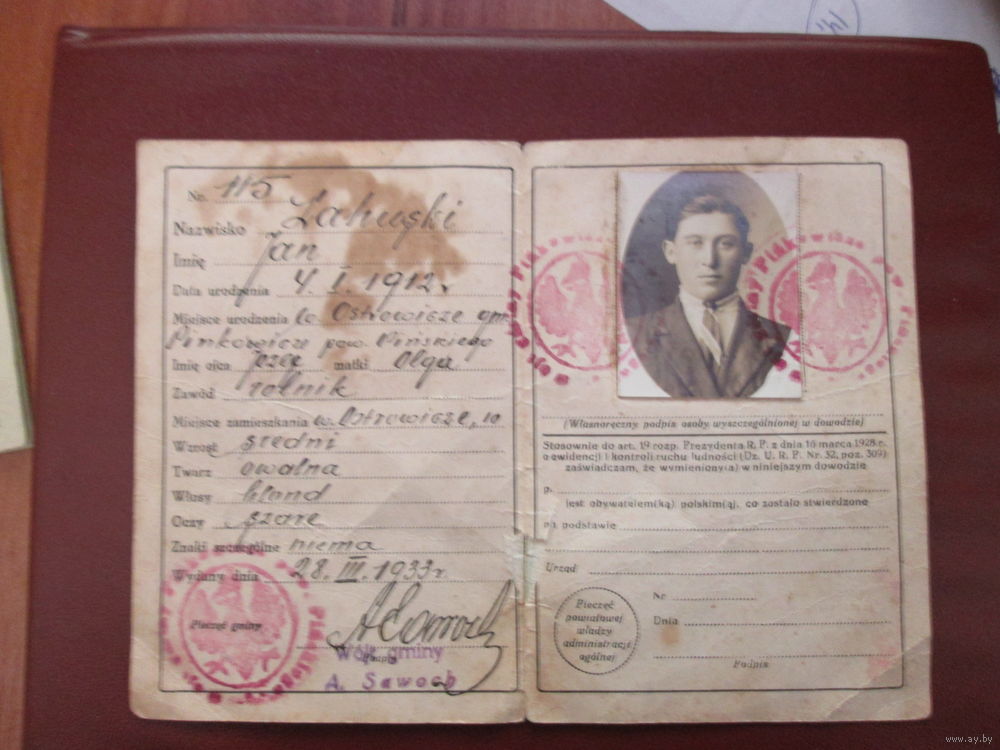 Nr. 115
Nazwisko
Imię Jan
Data urodzenia 4. I. 1912 r
Miejsce urodzenia w. Ostrowicze gm.
Pinkowicze pow. Pińskiego
Imię ojca matki Olga
Zawód rolnik
Miejsce zamieszkania w. Ostrowicze, 10
Wzrost średni
Twarz owalna
Włosy blond
Oczy szare
Znaki szczególne niema
Wydany dnia 28. III. 1933 r.
Pieczęć gminy
Wójt gminy
A. Sawoch
(Własnoręczny podpis osoby wyszczególnionej w dowodzie)
Stosownie do art. 19 rozp. Prezydenta R. P. z dnia 16 marca 1928 r.
o ewidencji i kontroli ruchu ludności (Dz. U. R. P. Nr. 32, poz. 309)
zaświadczam, że wymieniony(a) w niniejszym dowodzie
p.
jest obywatelem(ką) polskim(ą), co zostało stwierdzone
na podstawie
Urząd
Nr
Dnia
Podpis
Pieczęć
powiatowej
władzy
administracji
ogólnej
www.ay.by